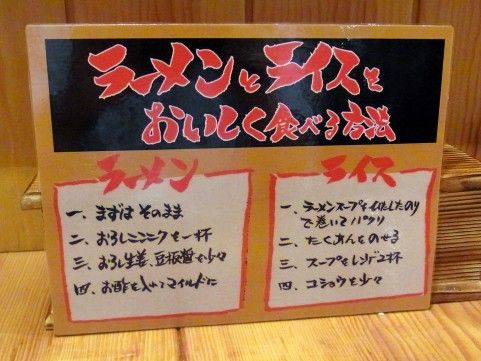 ラーメンとライスを
おいしく食べる方法
ラーメン
一、まずは そのまま
二、おろしニンニクを一杯
三、おろし生姜、豆板醤を少々
四、お酢を入れてマイルドに
ライス
一、ラーメンスープをひたしたのり
で巻いてパクリ
二、たくあんをのせる
三、スープをレンゲ2杯
四、コショウを少々